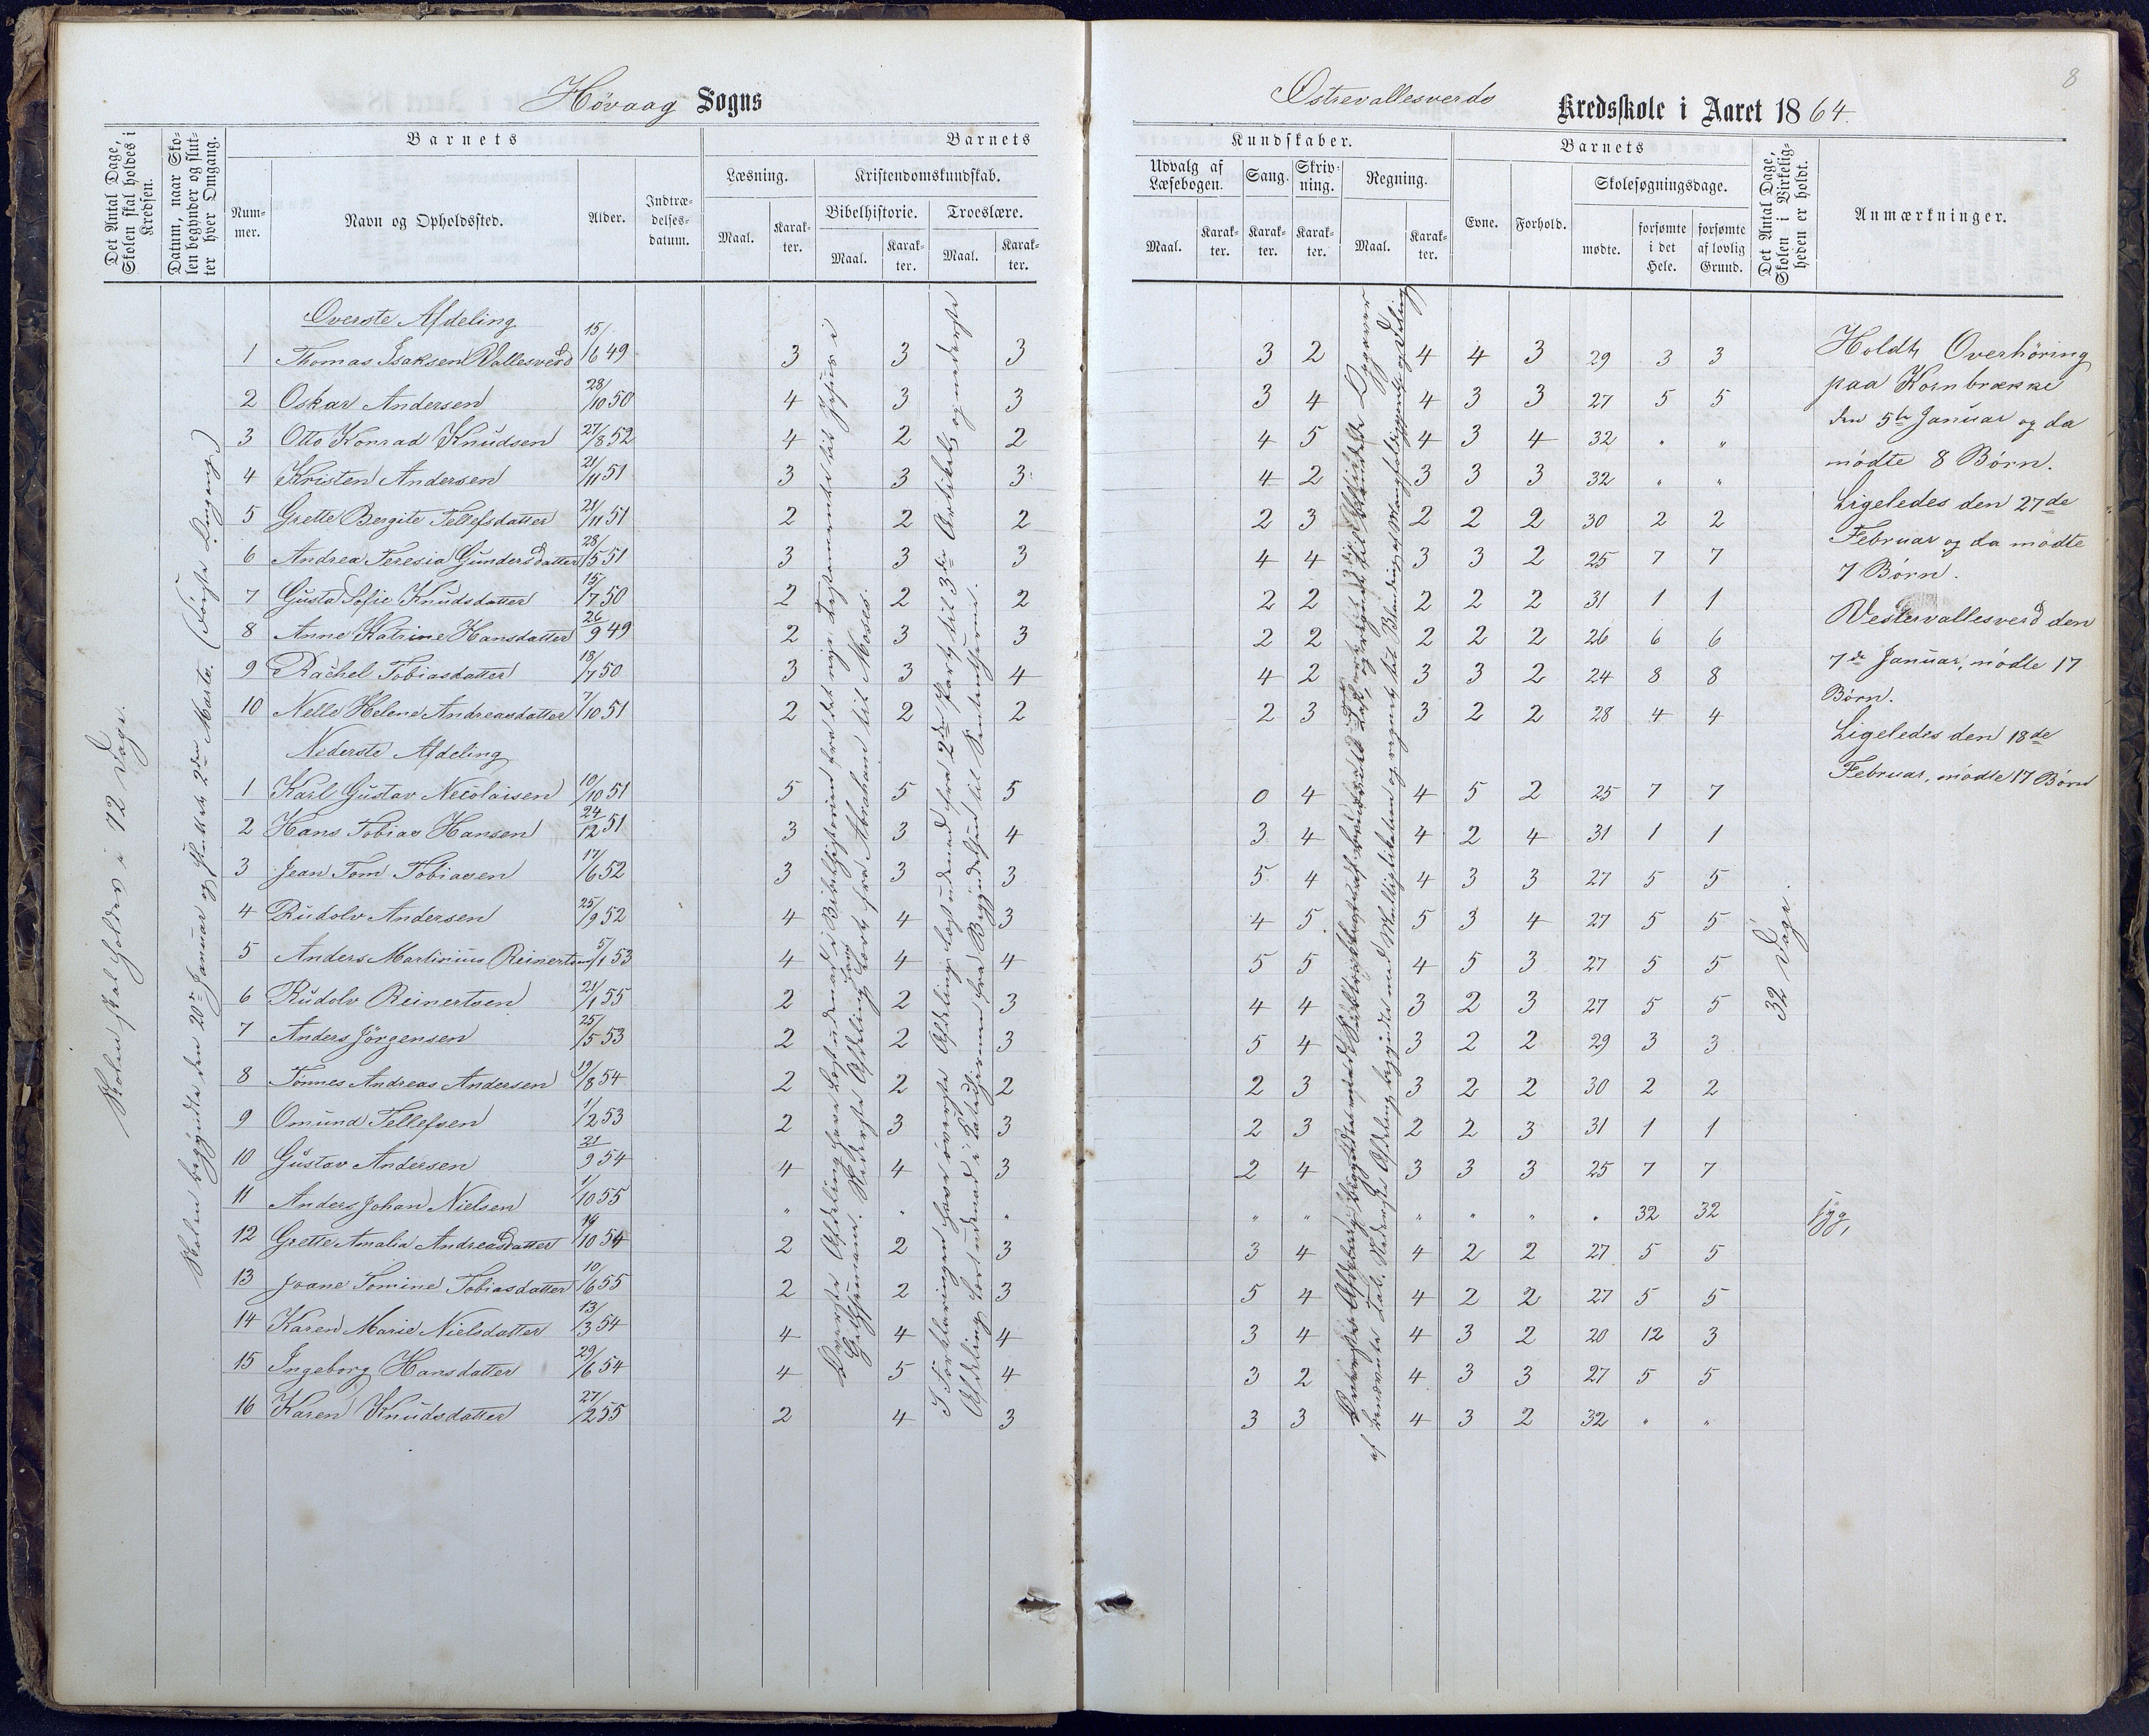 8
Høvaag Sogns
Østrevallesverds Kredsskole i Aaret 1864.
Det Antal Dage, Skolen skal holdes i Kredsen.
Datum, naar Skolen begynder og slutter hver Omgang.
Barnets
Nummer.
Navn og Opholdssted.
Alder.
Indtrædelsesdatum.
Barnets
Læsning.
Maal.
Karakter.
Kristendomskundskab.
Bibelhistorie.
Maal.
Karakter.
Troeslære.
Maal.
Karakter.
Kundskaber.
Udvalg af Læsebogen.
Maal.
Karakter.
Sang.
Karakter.
Skrivning.
Karakter.
Regning.
Maal.
Karakter.
Barnets
Evne.
Forhold.
Skolesøgningsdage.
mødte.
forsømte i det Hele.
forsømte af lovlig Grund.
Det Antal Dage, Skolen i Virkeligheden er holdt.
Anmærkninger.
Skolen skal holdes i 72 Dage.
Skolen begyndte den 20de Januar og sluttede 2den Marts. (Første Omgang)
Overste Afdeling
1 Thomas Isaksen Vallesverd 15/6 49 3 3 3 3 2 4 4 3 29 3 3
2 Oskar Andersen 28/10 50 4 3 3 3 4 4 3 3 27 5 5
3 Otto Konrad Knudsen 27/8 52 4 2 2 4 5 4 3 4 32 " "
4 Kristen Andersen 21/11 51 3 3 3 4 2 3 3 3 32 " "
5 Grette Bergite Tellefsdatter 21/11 51 2 2 2 2 3 2 2 2 30 2 2
6 Andrea Teresia Gundersdatter 28/5 51 3 3 3 4 4 3 3 2 25 7 7
7 Gusta Sofie Knudsdatter 15/7 50 2 2 2 2 2 2 2 2 31 1 1
8 Anne Katrine Hansdatter 26/9 49 2 3 3 2 2 2 2 2 26 6 6
9 Rachel Tobiasdatter 18/7 50 3 3 4 4 2 3 3 2 24 8 8
10 Nelle Helene Andreasdatter 7/10 51 2 2 2 2 3 3 2 2 28 4 4
Nederste Afdeling
1 Karl Gustav Nicolaisen 10/10 51 5 5 5 0 4 4 5 2 25 7 7
2 Hans Tobias Hansen 24/12 51 3 3 4 3 4 4 2 4 31 1 1
3 Jean Tom Tobiasen 17/6 52 3 3 3 5 4 4 3 3 27 5 5
4 Rudolv Andersen 25/9 52 4 4 3 4 5 5 3 4 27 5 5
5 Anders Martinius Reinertsen 5/1 53 4 4 4 5 5 4 5 3 27 5 5
6 Rudolv Reinertsen 21/1 55 2 2 3 4 4 3 2 3 27 5 5
7 Anders Jörgensen 25/5 53 2 2 3 5 4 3 2 2 29 3 3
8 Tønnes Andreas Andersen 19/8 54 2 2 2 2 3 3 2 2 30 2 2
9 Omund Tellefsen 1/2 53 2 3 3 2 3 2 2 3 31 1 1
10 Gustav Andersen 21/9 54 4 4 3 2 4 3 3 3 25 7 7
11 Anders Johan Nielsen 1/10 55 " " " " " " " " " 32 32 syg,
12 Grette Amalia Andreasdatter 19/10 54 2 2 3 3 4 4 2 2 27 5 5
13 Joane Tomine Tobiasdatter 10/6 55 2 2 3 5 4 4 2 2 27 5 5
14 Karen Marie Nielsdatter 13/3 54 4 4 4 3 4 4 3 2 20 12 3
15 Ingeborg Hansdatter 29/6 54 4 5 4 3 2 4 3 3 27 5 5
16 Karen Knudsdatter 27/2 55 2 4 3 3 3 4 3 2 32 " "
Overste Afdeling have læst udenad i Bibelhistorien fra det nye Testamente til Jesus i
Gethsemane. Nederste Afdeling fra Abraham til Moses.
I Forklaringen have øverste Afdeling læst udenad fra 2den Part til 3die Artikel og nederste
Afdeling læst udenad i Katechismen fra Begyndelsen til Sententserne.
32 Dage.
Holdt Overhöring
paa Kornbrække
den 5te Januar og da
mödte 8 Børn.
Ligeledes den 27de
Februar og da mödte
7 Børn.
Vestervallesverd den
7de Januar, mödte 17
Börn.
Ligeledes den 18de
Februar, mødte 17 Börn